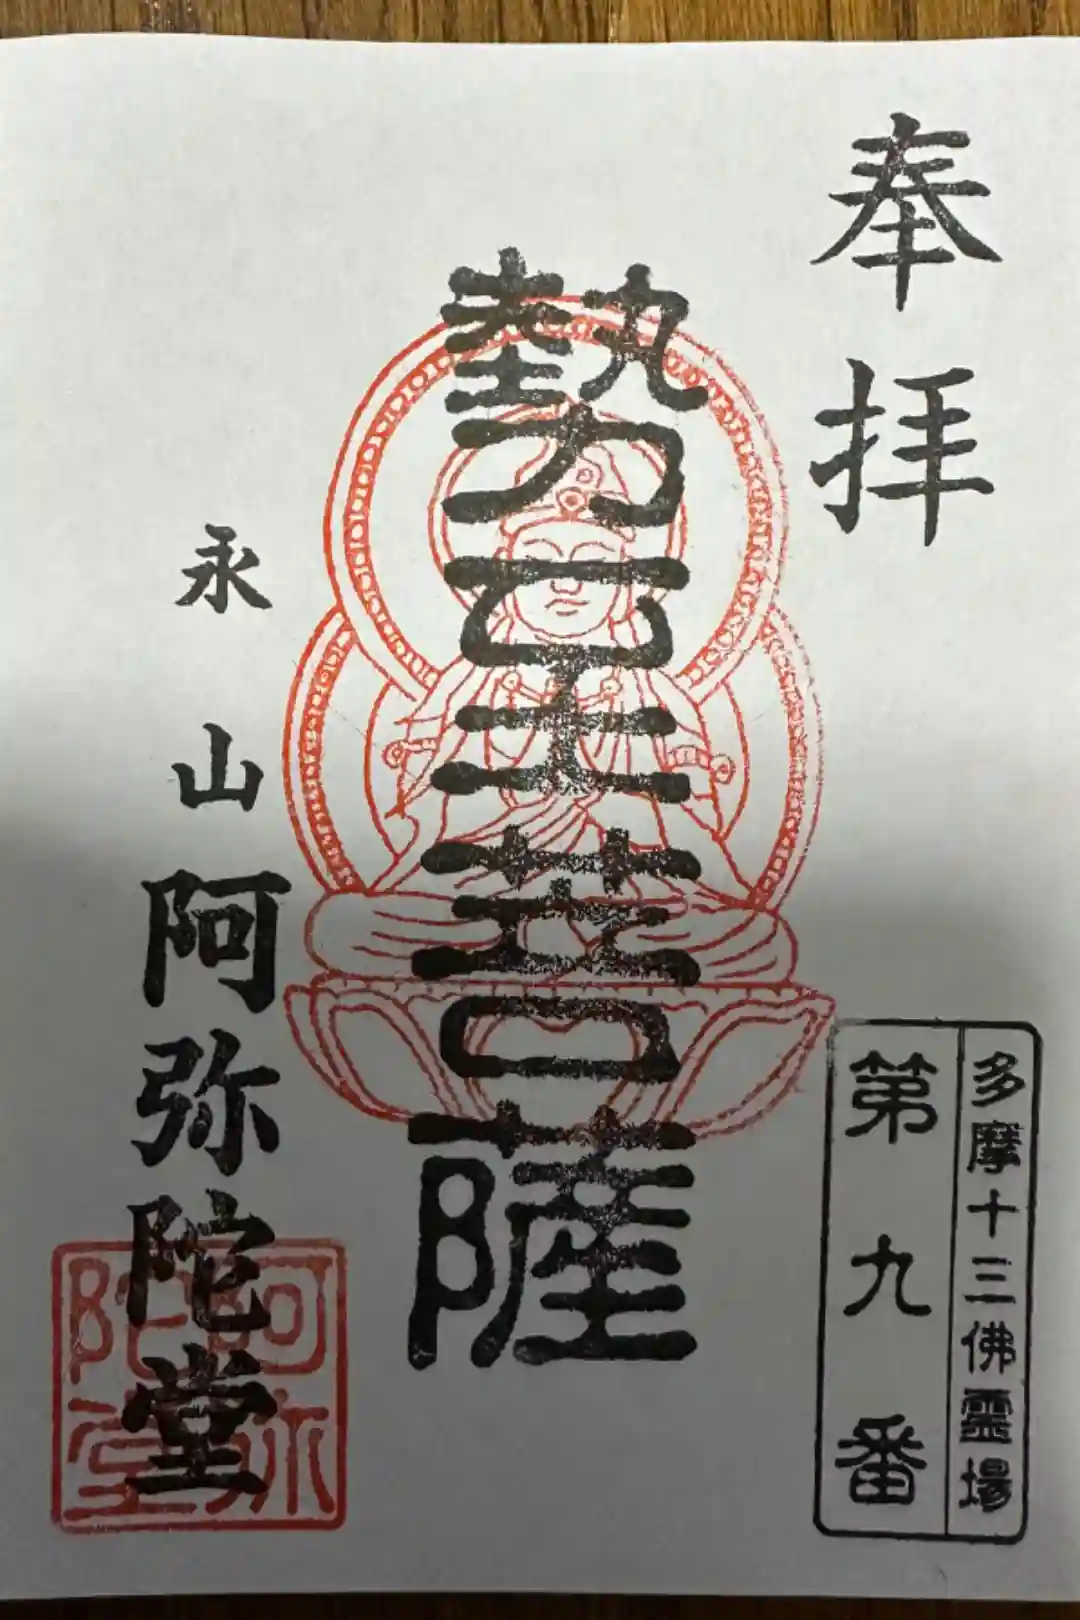 奉拝
多摩十三佛霊場
第九番
勢至菩薩
永山阿弥陀堂
阿弥
陀堂